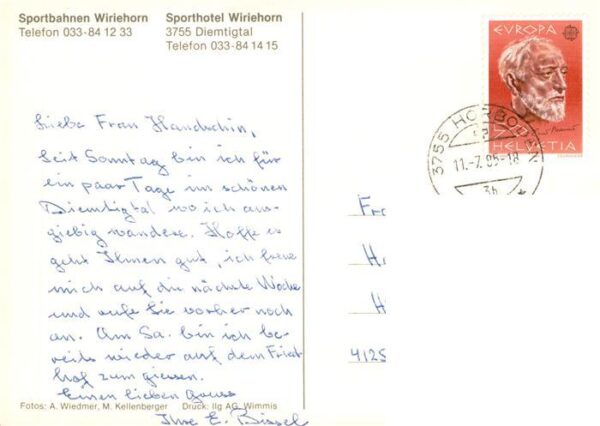 Sportbahnen Wiriehorn
Telefon 033-84 12 33
Sporthotel Wiriehorn
3755 Diemtigtal
Telefon 033-84 14 15
EUROPA
70
HELVETIA
3755 HORBODEN
11.-7.85-18
Liebe Frau Handschin,
Seit Sonntag bin ich für
ein paar Tage im schönen
Diemtigtal wo ich aus-
giebig wandere. Hoffe es
geht Ihnen gut, ich freue
mich auf die nächste Woche
und rufe Sie vorher noch
an. Am Sa. bin ich be-
reits wieder auf dem Fried-
hof zum giessen.
Einen lieben Gruss
Ihre E. Bissel
Fr
H
H
4125
Fotos: A. Wiedmer, M. Kellenberger Druck: Ilg AG, Wimmis